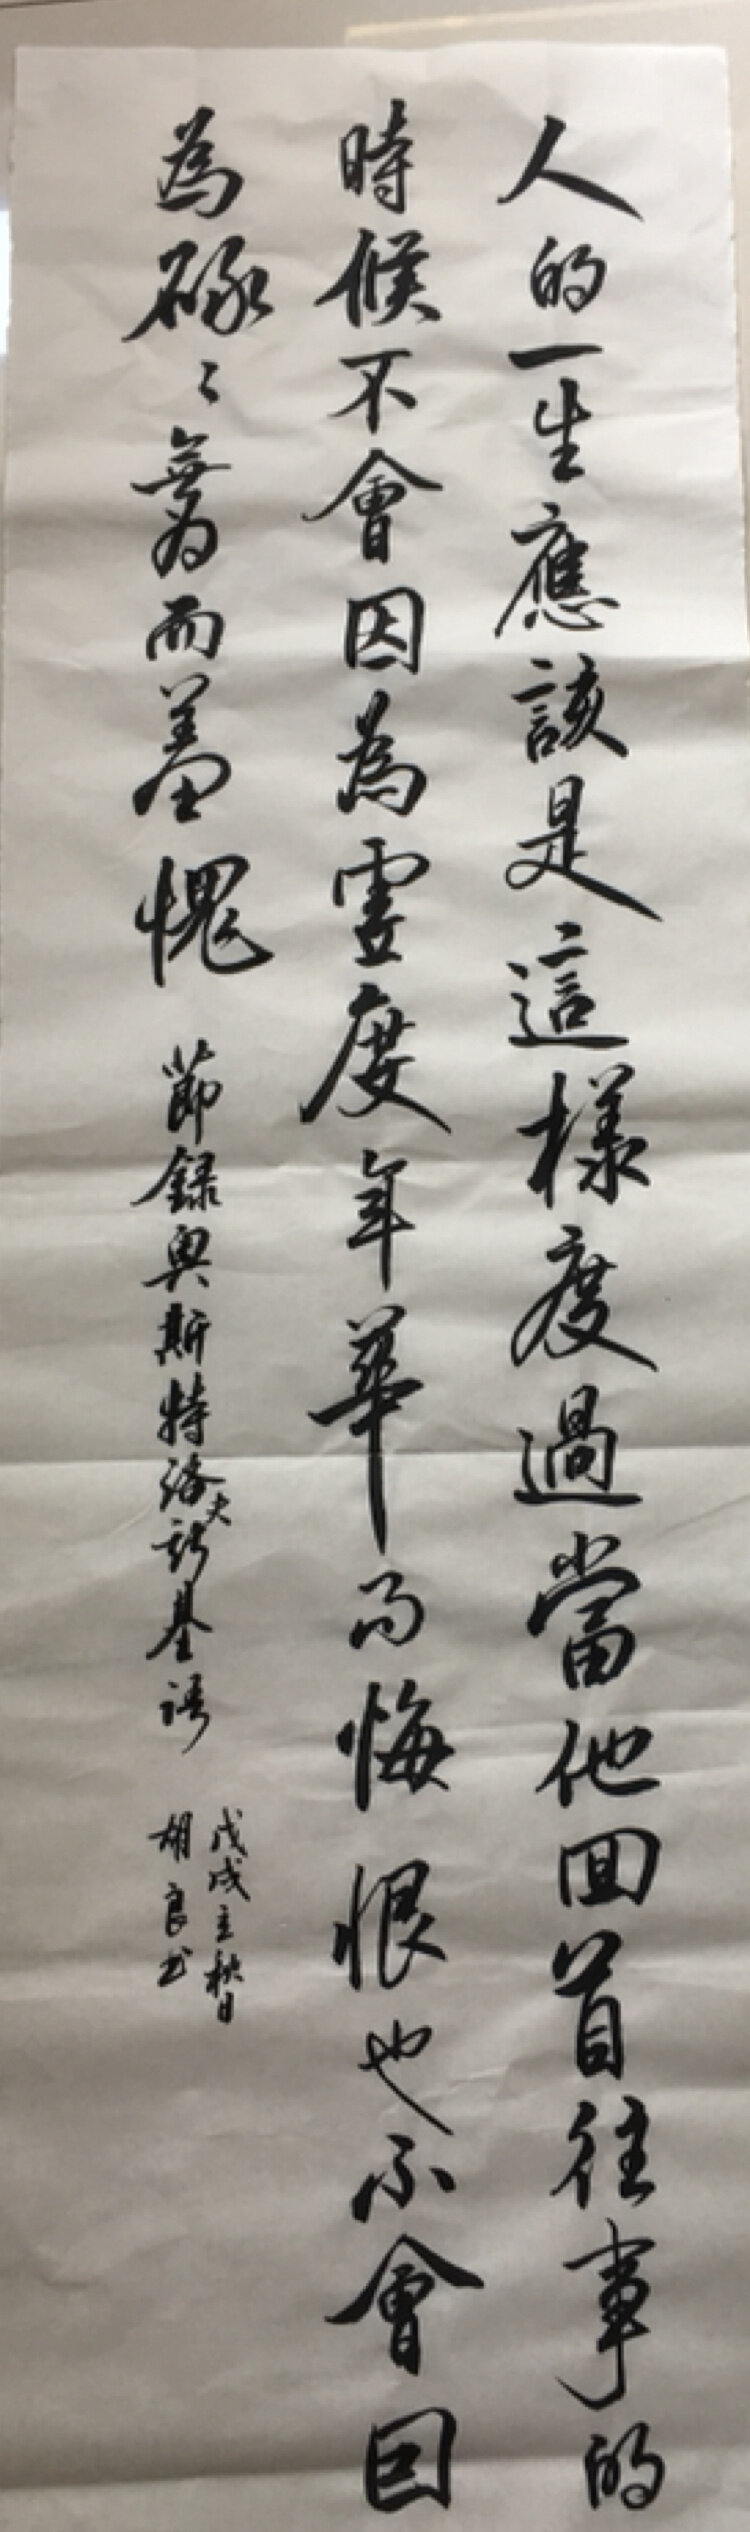 人的一生應該是這樣度過當他回首往事的
時候不會因為虛度年華而悔恨也不會因
為碌〻無為而羞愧
節録奥斯特洛夫斯基語
戊戌立秋日
胡良书